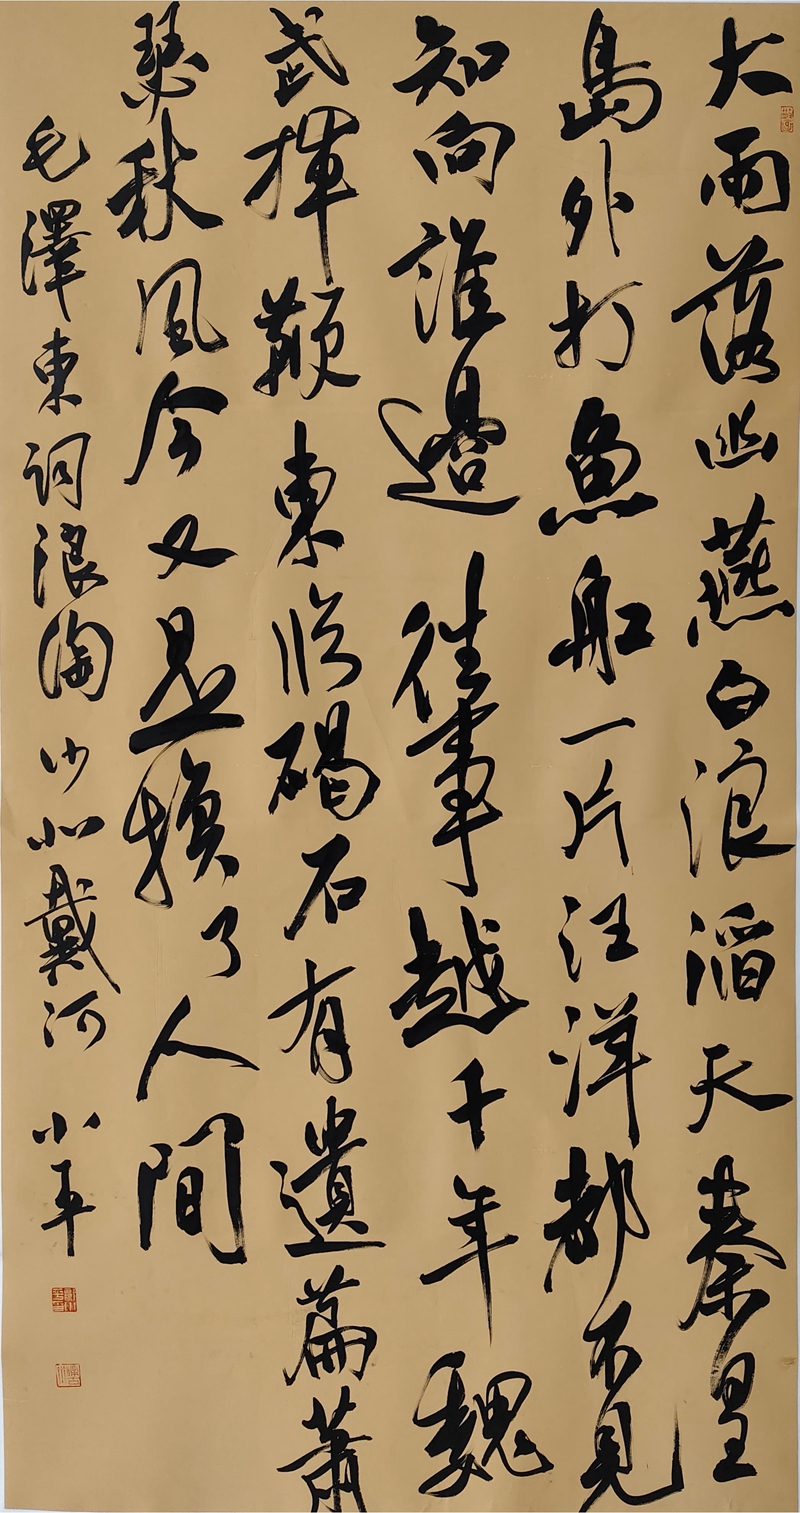 大雨落幽燕白浪滔天秦皇
島外打魚船一片汪洋都不見
知向誰邊往事越千年魏
武揮鞭東臨碣石有遺篇蕭
瑟秋風今又是換了人間
毛澤東詞浪淘沙北戴河 小平